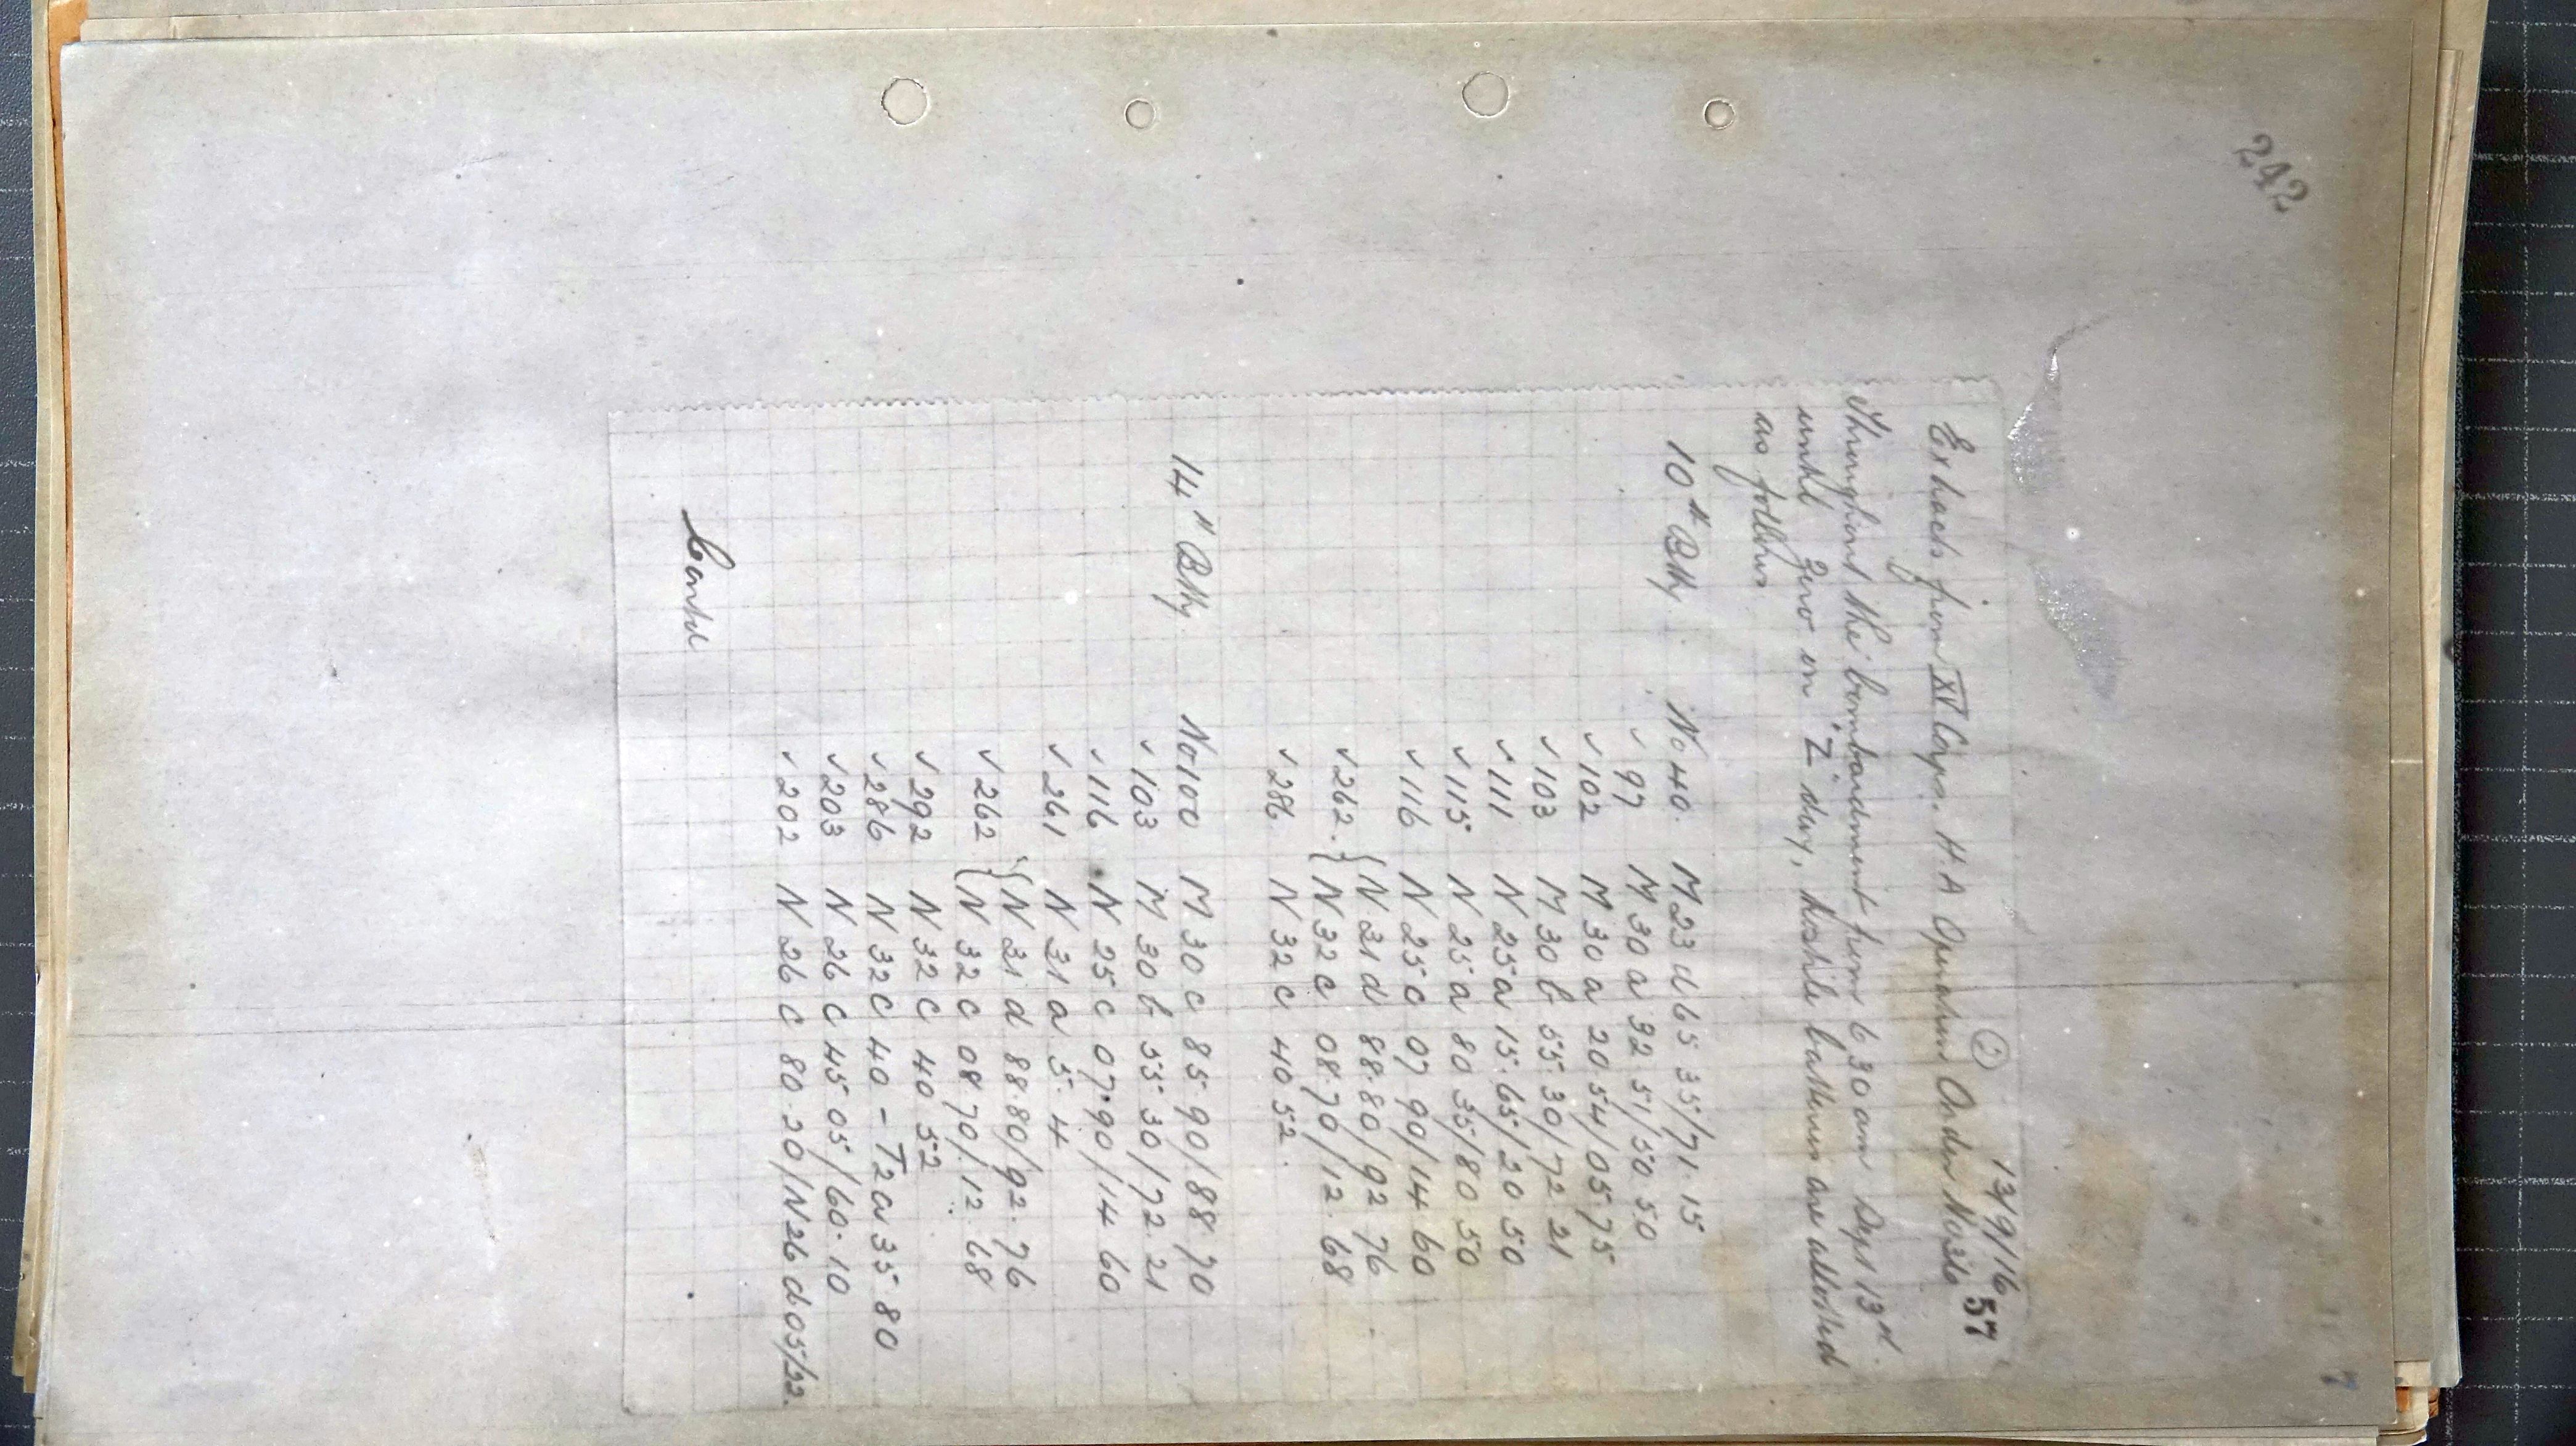 242
13/9/16 57
②
Extracts from XV Corps. H.A Operation Order No 36
Throughout the bombardment from 6 30 am Sept 13th
until Zero on "Z" day, hostile batteries are allotted
as follows
10th Bty. No 40. M 23 d 65 35/71.15
✓ 97 M 30 a 32 51/50 50
✓ 102 M 30 a 20 54/05.75
✓ 103 M 30 b 55.30/72 21
✓ 111 N 25 a 15.65/20 50
✓ 115 N 25 a 80 35/80 50
✓ 116 N 25 c 07 90/14 60
✓ 262. { N 31 d 88.80/92 76
{ N 32 c 08.70/12.68
✓ 286 N 32 c 40 52.
14" Bty. No 100 M 30 c 85.90/88 70
✓ 103 M 30 b 55 30/72.21
✓ 116 N 25 c 07.90/14 60
✓ 261 N 31 a 5.4
✓ 262 { N 31 d 88.80/92.76
{ N 32 c 08 70/.12.68
✓ 292 N 32 c 40 52
✓ 286 N 32 c 40 - T 2 a 35 80
✓ 203 N 26 c 45 05/60.10
✓ 202 N 26 c 80.20/N 26 d 05/22.
Contd